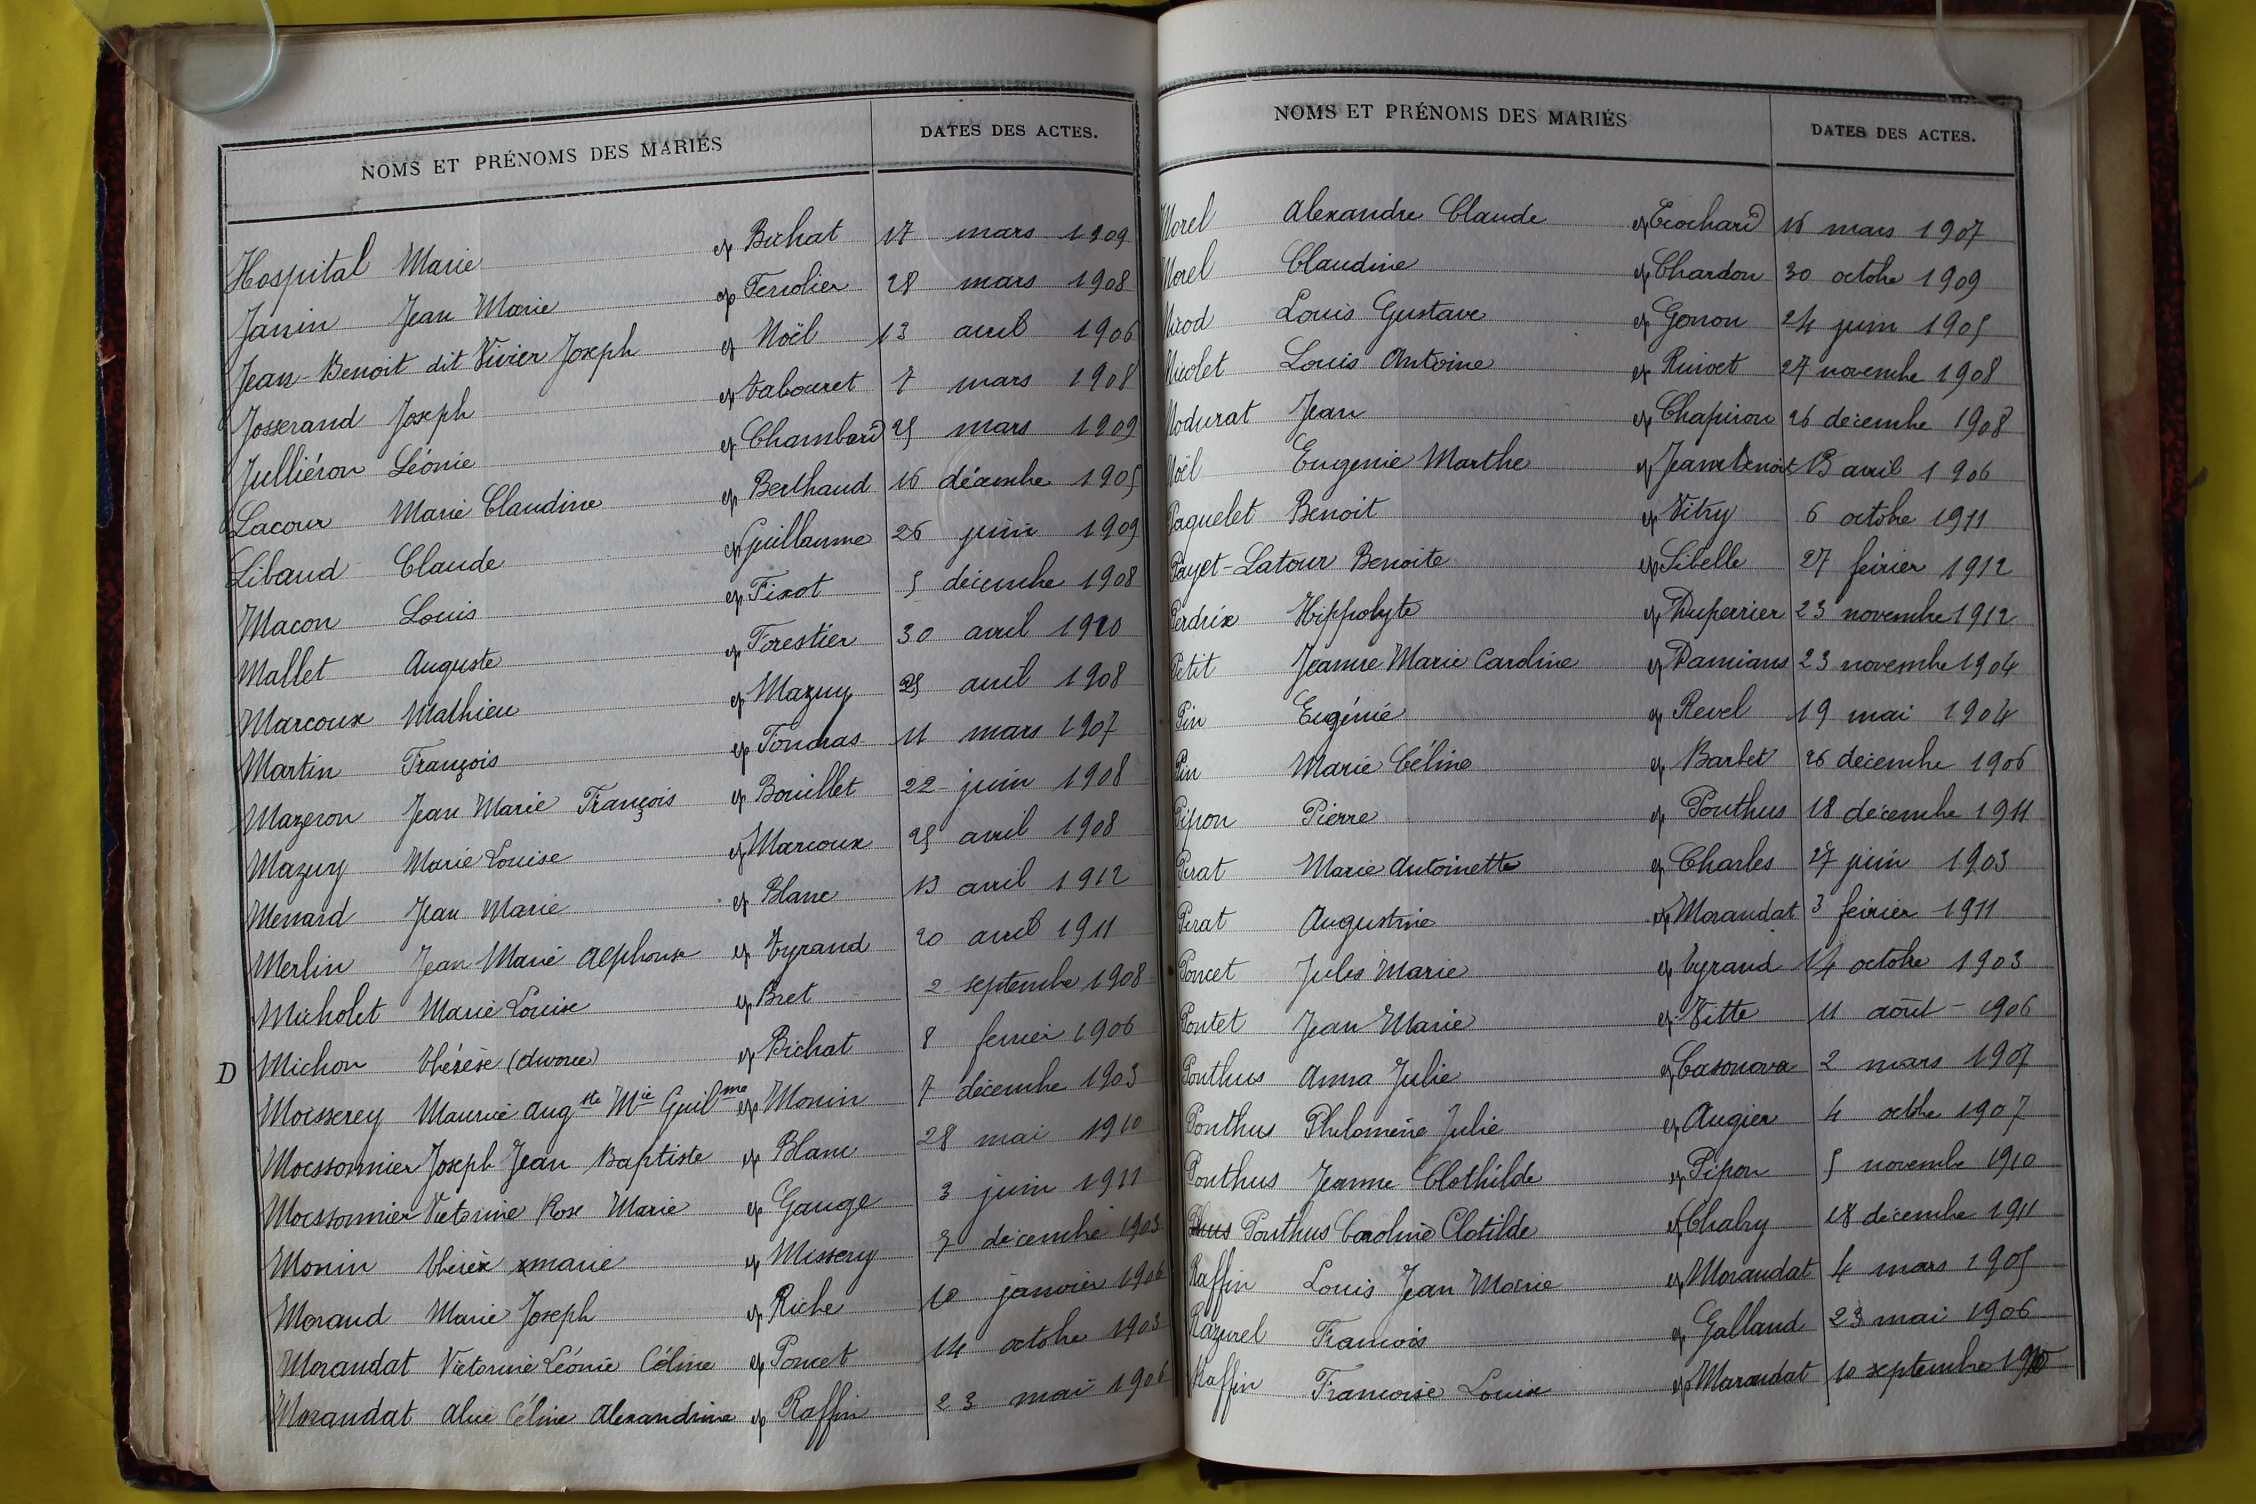 NOMS ET PRÉNOMS DES MARIÉS DATES DES ACTES.
Hospital Marie ep Bichat 17 mars 1909
Janin Jean Marie ep Ferrolier 28 mars 1908
Jean-Benoit dit Vivier Joseph ep Noël 13 avril 1906
Josserand Joseph ep Tabouret 7 mars 1908
Julliéron Léonie ep Chambard 25 mars 1909
Lacour Marie Claudine ep Berthaud 16 décembre 1905
Libaud Claude ep Guillaume 26 juin 1909
Macon Louis ep Fixot 5 décembre 1908
Mallet Auguste ep Forestier 30 avril 1910
Marcoux Mathieu ep Mazuy 25 avril 1908
Martin François ep Tondras 11 mars 1907
Mazeron Jean Marie François ep Bouillet 22 juin 1908
Mazuy Marie Louise ep Marcoux 25 avril 1908
Menard Jean Marie ep Blanc 13 avril 1912
Merlin Jean Marie Alphonse ep Tyrand 20 avril 1911
Micholet Marie Louise ep Bret 2 septembre 1908
D Michon Thérèse (divorce) ep Bichat 8 fevrier 1906
Moisserey Maurice Aug ste M ie Guil me ep Monin 7 décembre 1903
Moissonnier Joseph Jean Baptiste ep Blanc 28 mai 1910
Moissonnier Victorine Rose Marie ep Gauge 3 juin 1911
Monin Thérèse marie ep Missery 7 décembre 1903
Morand Marie Joseph ep Riche 10 janvier 1906
Morandat Victorine Léonie Céline ep Poncet 14 octobre 1903
Morandat Alice Céline Alexandrine ep Raffin 23 mai 1906
NOMS ET PRÉNOMS DES MARIÉS DATES DES ACTES.
Morel Alexandre Claude ep Trochard 16 mars 1907
Morel Claudine ep Chardon 30 octobre 1909
Louis Gustave ep Gonon 24 juin 1905
Nicolet Louis Antoine ep Ruivet 27 novembre 1908
Nodurat Jean ep Chapiron 26 décembre 1908
Noël Eugenie Marthe ep Jean Benoit 13 avril 1906
Paquelet Benoit ep Vitry 6 octobre 1911
Payet-Latour Benoite ep Sibelle 27 février 1912
Perdrix Hippolyte ep Duperrier 23 novembre 1912
Petit Jeanne Marie Caroline ep Damians 23 novembre 1904
Pin Eugénie ep Revel 19 mai 1904
Pin Marie Céline ep Barbet 26 décembre 1906
Pipon Pierre ep Ponthus 18 décembre 1911
Pirat Marie Antoinette ep Charles 27 juin 1903
Pirat Augustine ep Morandat 3 février 1911
Poncet Jules Marie ep Tyrand 14 octobre 1903
Pontet Jean Marie ep Vitte 11 août 1906
Ponthus Anna Julie ep Casonova 2 mars 1907
Ponthus Philomène Julie ep Augier 4 octobre 1907
Ponthus Jeanne Clothilde ep Pipon 5 novembre 1910
Ponthus Caroline Clotilde ep Chabry 18 décembre 1911
Raffin Louis Jean Marie ep Morandat 4 mars 1905
Razurel Francois ep Galland 23 mai 1906
Raffin Francoise Louise ep Marandat 10 septembre 1910